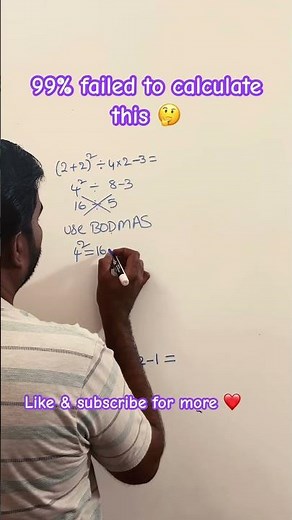 99% failed to calculate
this 🤔
(2+2)² ÷ 4×2-3=
4² ÷ 8-3
16 ÷ 5
USE BODMAS
4²=16
2-1=
Like & subscribe for more ❤️